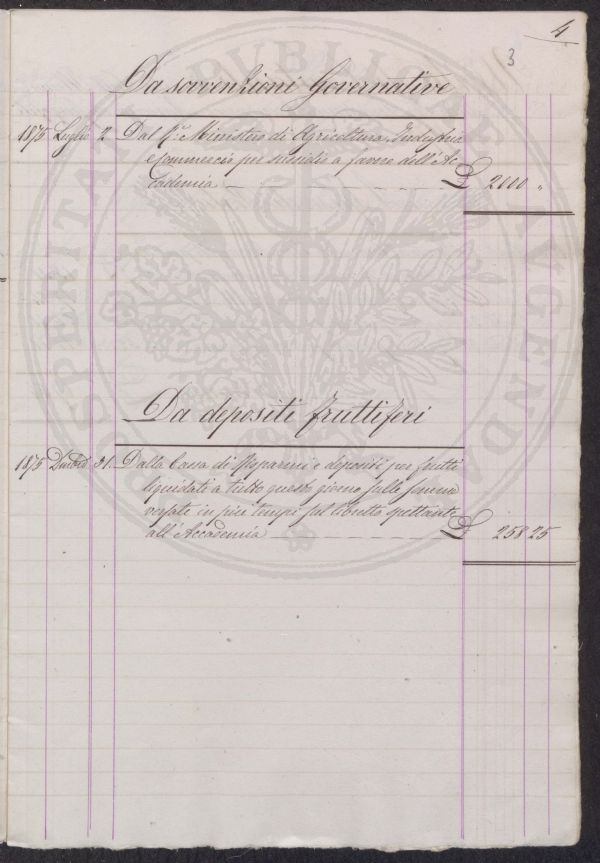 4
3
Da sovvenzioni Governative
1875 Luglio 2 Dal R.º Ministero di Agricoltura, Industria
e Commercio per sussidio a favore dell'Ac
cademia £ 2000 "
Da depositi fruttiferi
1875 31. Dalla Cassa di Risparmi e depositi per frutti
liquidati a tutto questo giorno sulle somme
versate in più tempi sul libretto spettante
all'Accademia £ 258 25
PROSPERITATI PUBLICAE AUGENDAE